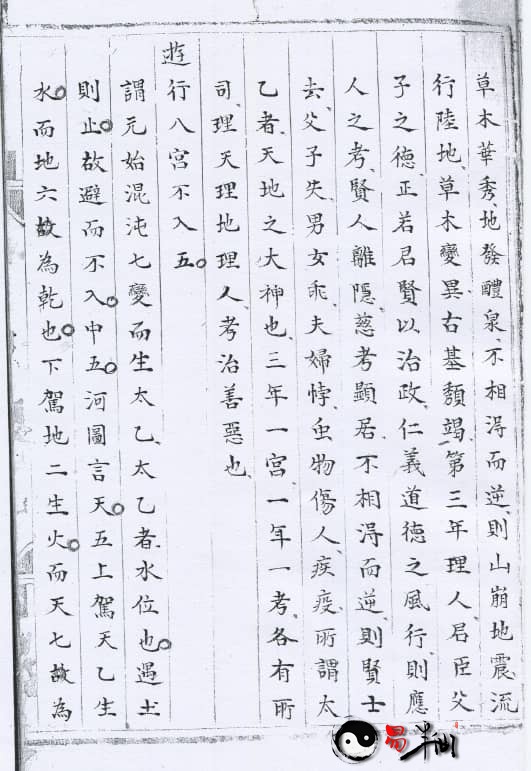 草木華秀、地發醴泉、不相淂而逆、則山崩地震、流
行陸地、草木變異、古基頽竭、第三年理人、君臣父
子之德、正若君賢以治政、仁義道德之風行、則應
人之考、賢人離隱、慈考顯居、不相淂而逆、則賢士
去、父子失、男女乖、夫婦悖、虫物傷人、疾疫、所謂太
乙者、天地之大神也、三年一宮、一年一考、各有所
司、理天理地理人、考治善惡也、
遊行八宮不入五。
謂元始混沌七變而生太乙、太乙者、水位也。遇土
則止。故避而不入。中五。河圖言天。五上駕天乙生
水。而地六故為乾也。下駕地二生火。而天七故為
易半仙